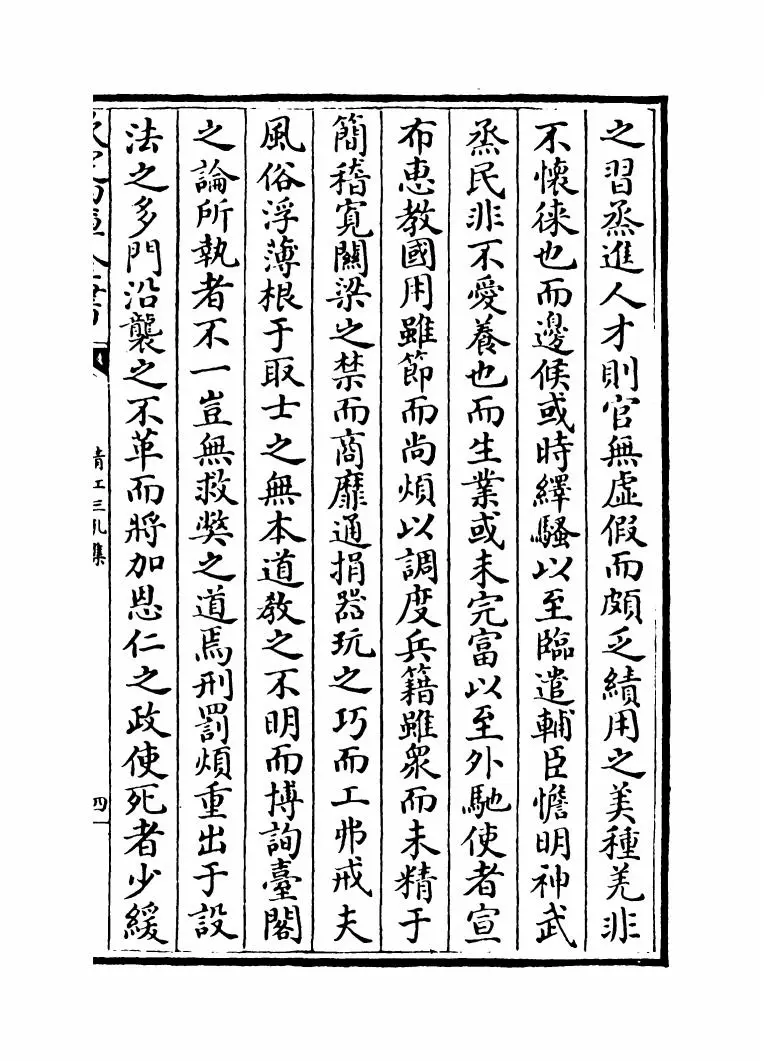 之習烝進人才則官無虛假而頗乏績用之美種羌非
不懷徠也而邊候或時繹騷以至臨遣輔臣憺明神武
烝民非不愛養也而生業或未完富以至外馳使者宣
布惠教國用雖節而尚煩以調度兵籍雖衆而未精于
簡稽寛關梁之禁而商靡通捐器玩之巧而工弗戒夫
風俗浮薄根于取士之無本道教之不明而博詢臺閣
之論所執者不一豈無救獘之道焉刑罰煩重出于設
法之多門沿襲之不革而將加恩仁之政使死者少緩
欽定四庫全書
清江三孔集
四